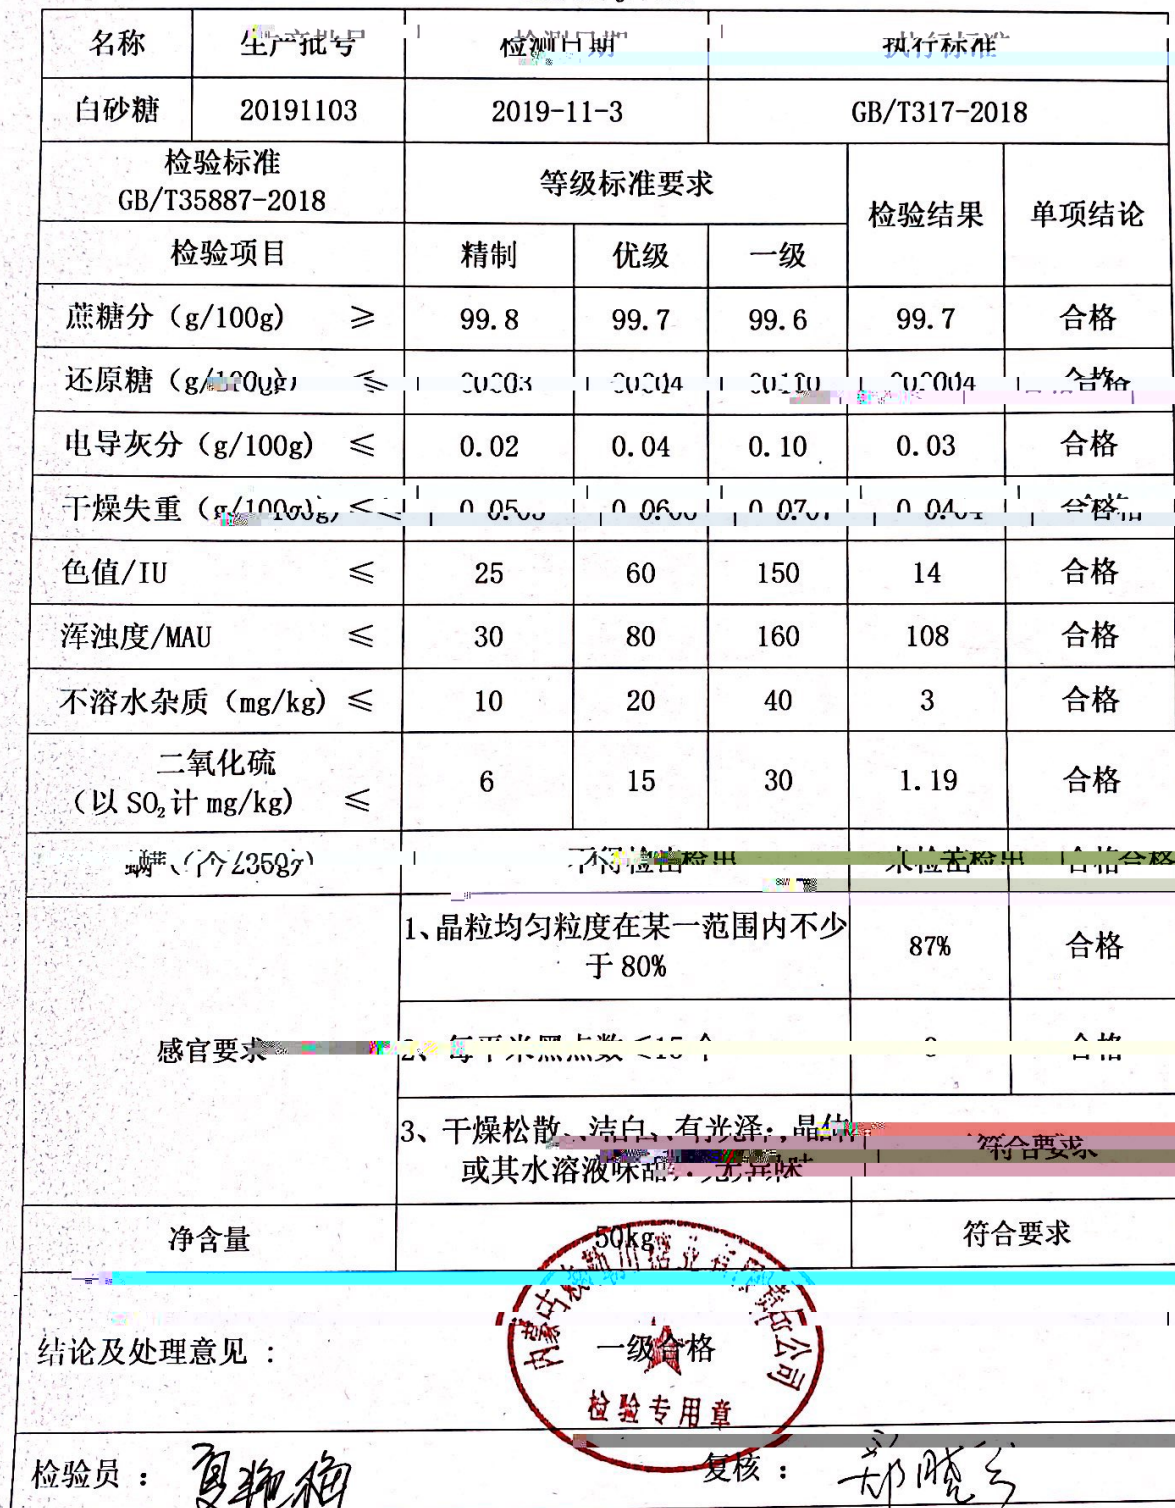 名称 生产批号 检测日期 执行标准
白砂糖 20191103 2019-11-3 GB/T317-2018
检验标准
GB/T35887-2018
等级标准要求
检验结果 单项结论
检验项目 精制 优级 一级
蔗糖分（g/100g) ≥ 99.8 99.7 99.6 99.7 合格
还原糖（g/100g) ≤ 合格
电导灰分（g/100g) ≤ 0.02 0.04 0.10 0.03 合格
干燥失重（g/100g) ≤ 0.05 0.06 0.07 0.04 合格
色值/IU ≤ 25 60 150 14 合格
浑浊度/MAU ≤ 30 80 160 108 合格
不溶水杂质（mg/kg) ≤ 10 20 40 3 合格
二氧化硫
（以SO₂计mg/kg) ≤ 6 15 30 1.19 合格
螨（个/250g) 不得检出 未检出 合格
感官要求
1、晶粒均匀粒度在某一范围内不少
于80%
87% 合格
2、每平米黑点数≤15个 合格
3、干燥松散、洁白、有光泽,晶体
或其水溶液味甜,无异味
符合要求
净含量 50kg 符合要求
内蒙古敕勒川糖业有限责任公司
结论及处理意见 : 一级合格
检验专用章
检验员 : 复核 :